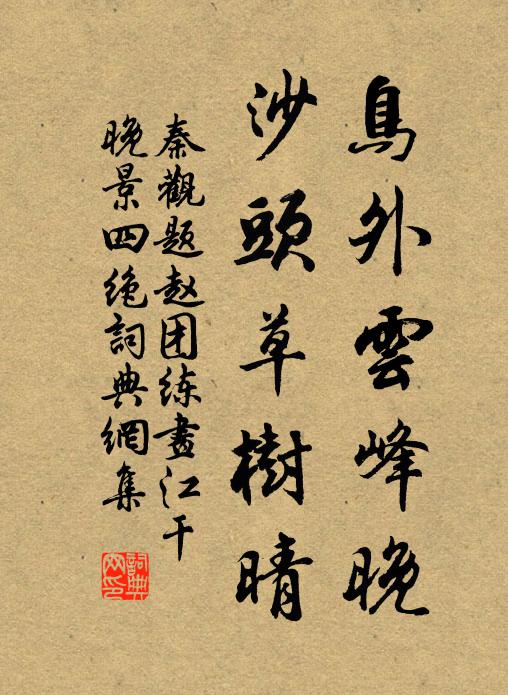 鳥外雲峰晚
沙頭草樹晴
秦觀題赵团练畫江干
晚景四绝詞典網集
詞典
网印